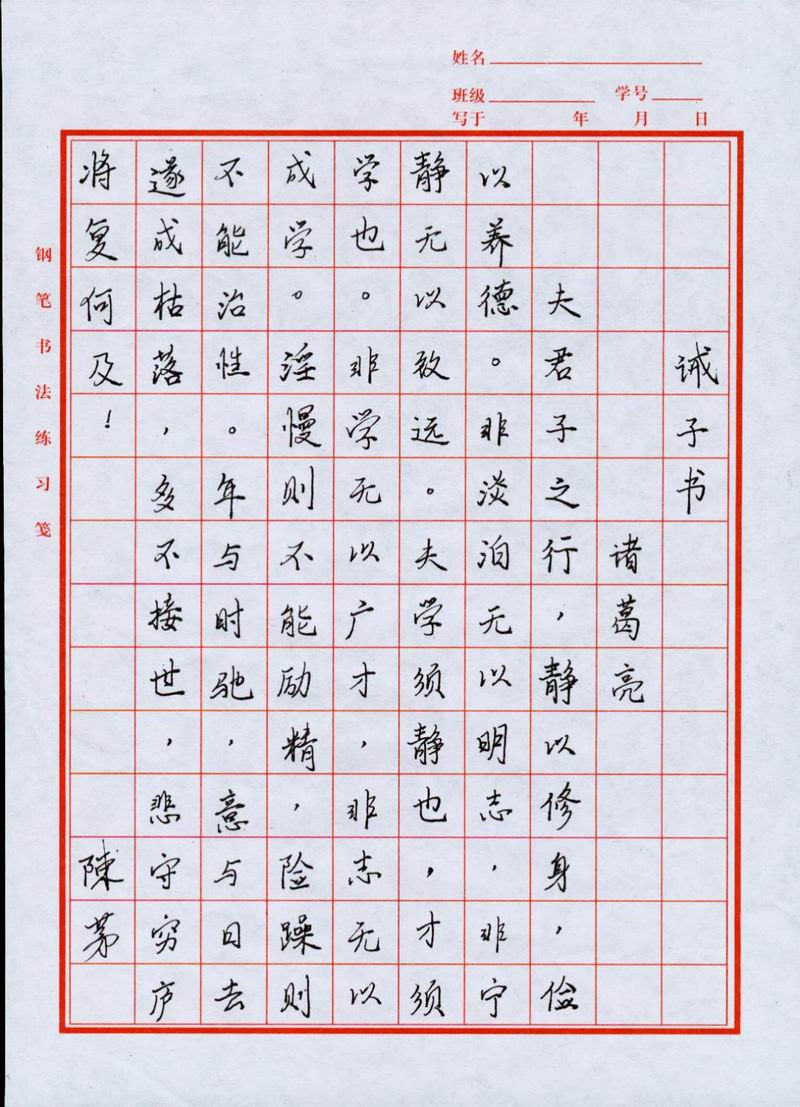 姓名
班级 学号
写于 年 月 日
钢笔书法练习笺
诫子书
诸葛亮
夫君子之行，静以修身，俭
以养德。非淡泊无以明志，非宁
静无以致远。夫学须静也，才须
学也。非学无以广才，非志无以
成学。淫慢则不能励精，险躁则
不能治性。年与时驰，意与日去
遂成枯落，多不接世，悲守穷庐
将复何及！
陳茅